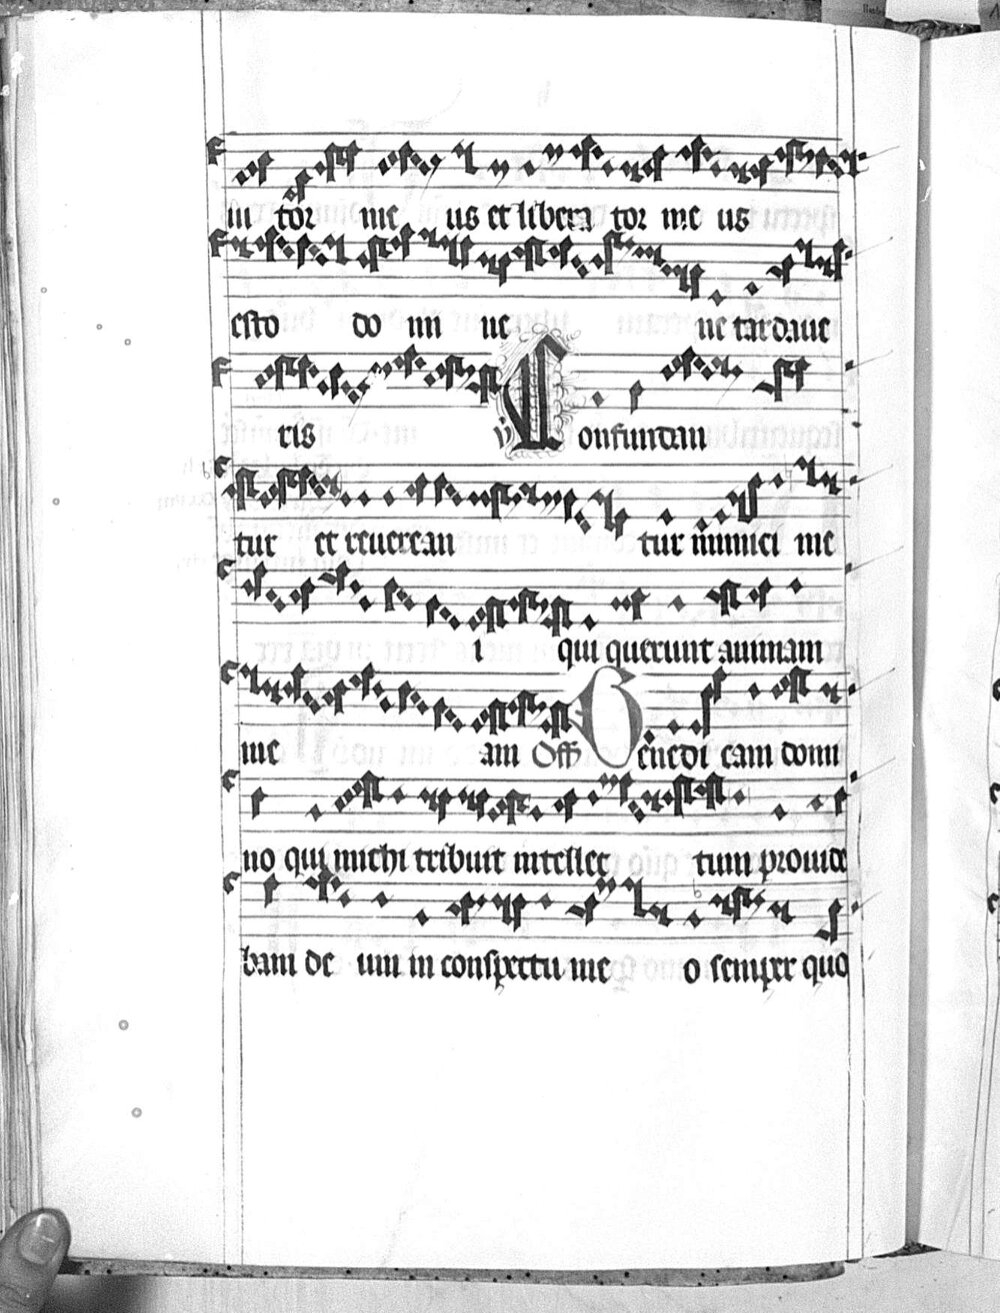 iu tor me us et libera tor me us
esto do mi ne ne tardaue
ris V Confundan
tur et reuerean tur inimici me
i qui querunt animam
me am Off Benedi cam domi
no qui michi tribuit intellec tum prouide
bam de um in conspectu me o semper quo